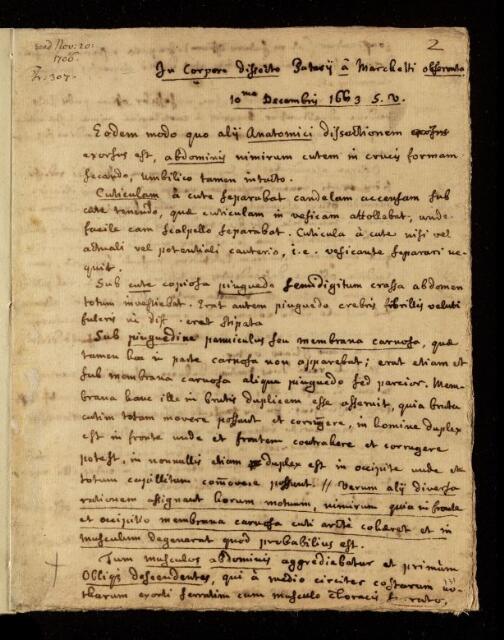 read Nov: 20:
1706.
307.
2
In Corpore dissecto Patavij à Marchetti observata
10mo Decembris 1663 S. V.
Eodem modo quo alij Anatomici dissectionem
exorsus est, abdominis nimirum cutem in crucis formam
secando, umbilico tamen intacto.
Cuticulam à cute separabat candelam accensam sub
cute tenendo, quae cuticulam in vesicam attollebat, unde
facile eam scalpello separabat. Cuticula à cute nisi vel
actuali vel potentiali cauterio, i.e. vesicante separari ne-
quit.
Sub cute copiosa pinguedo semidigitum crassa abdomen
totum investiebat. Erat autem pinguedo crebris fibrillis veluti
erat stipata
Sub pinguedine panniculus seu membrana carnosa, quae
tamen hac in parte carnosa non apparebat; erat etiam et
sub membrana carnosa aliqua pinguedo sed parcior. Mem-
brana hanc ille in brutis duplicem esse asseruit, quia bruta
cutim totam movere possunt et corrugere, in homine duplex
est in fronte unde et frontem contrahere et corrugere
potest, in nonnullis etiam duplex est in occipite unde et
totum capillitium com̄overe possunt. // Verum alij diversa
rationem assignant horum motuum, nimirum quia in fronte
et occipitio membrana carnosa cuti arcti cohaeret et in
musculum degenerat quod probabilius est.
Tum musculos abdominis aggrediebatur et primùm
Obliqs descendentes, qui à medio circiter costarum
tharum exorti serratim cum musculo Thoracis